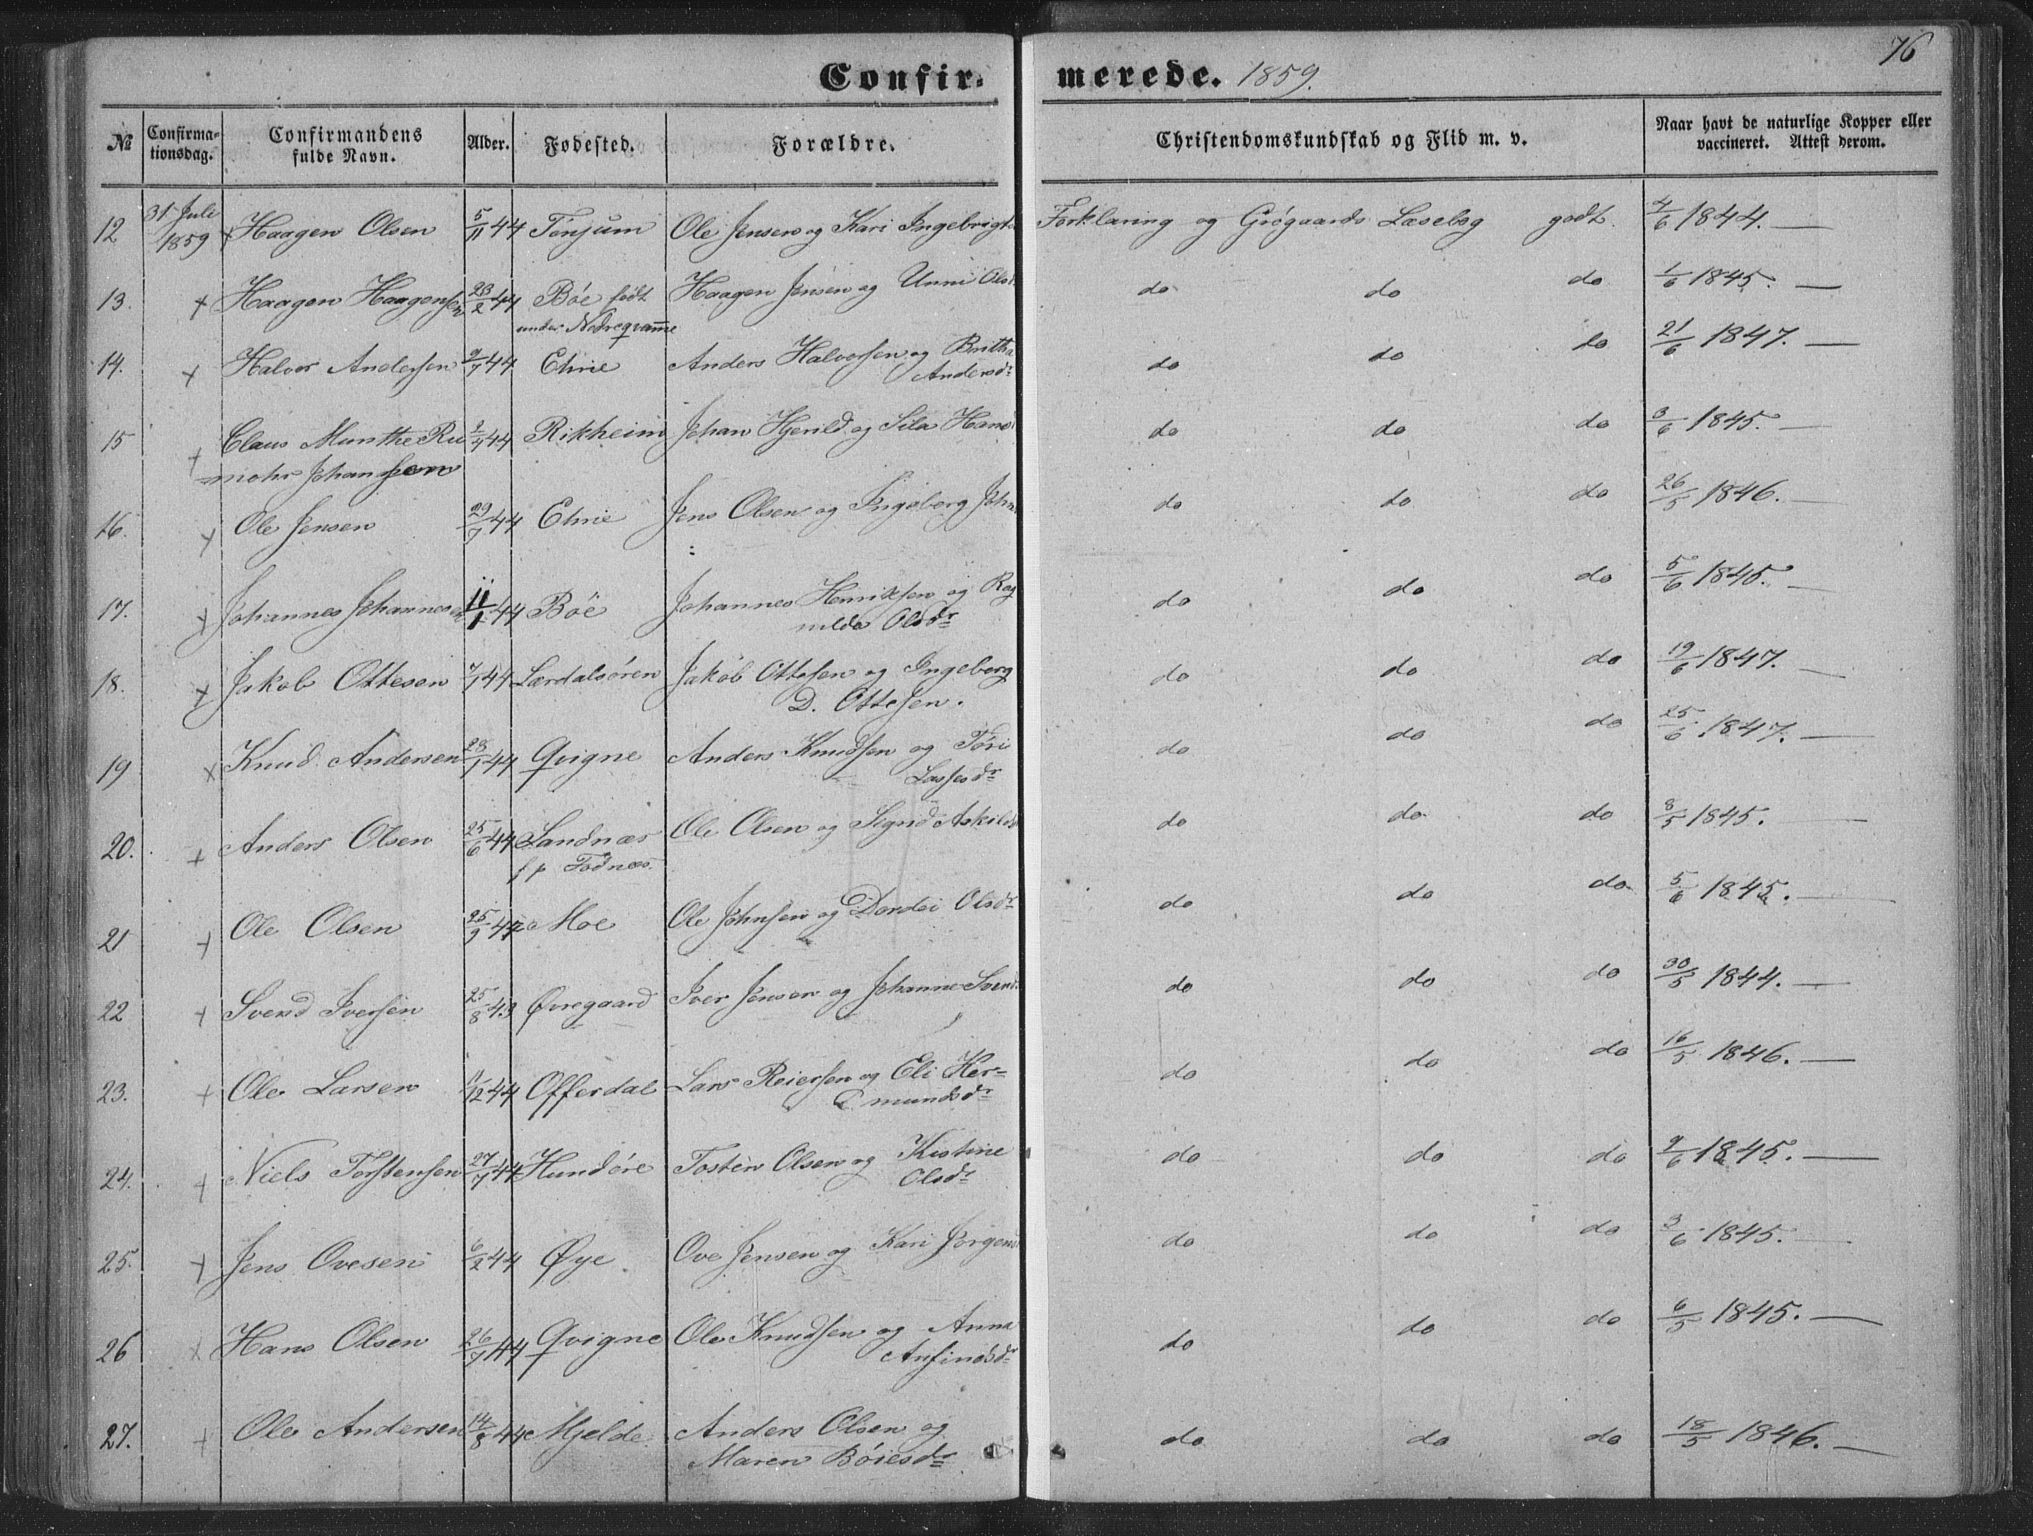 76
Confir- merede. 1859.
№ Confirma-tionsdag. Confirmandens fulde Navn. Alder. Fødested. Forældre. Christendomskundskab og Flid m. v. Naar havt de naturlige Kopper eller vaccineret. Attest derom.
12 31 Juli 1859 + Haagen Olsen 5/11 44 Tønjum Ole Jensen og Kari Ingebrigts Forklaring og Grøgaards Læsebog godt. 4/6 1844. —
13. + Haagen Haagensen 23/2 44 Bøe født Haagen Jensen og Unni Olsd do do do 1/6 1845. —
under Nedreqvamme
14. + Halvor Andersen 9/7 44 Etrie Anders Halvorsen og Britha do do do 21/6 1847. —
Andersdr
15 + Claus Munthe Ru 44 Rikheim Johan Hjerild og Sila Hans do do do 3/6 1845. —
mohr Johanssen
16. + Ole Jensen 29/7 44 Etrie Jens Olsen og Ingeborg Joh do do do 26/5 1846. —
17. + Johannes Johannesen 11/1 44 Bøe Johannes Henriksen og Rag do do do 5/6 1845. —
nilda Olsdr
18. + Jakob Ottesen 7/1 44 Lærdalsøren Jakob Ottesen og Ingeborg do do do 19/6 1847. —
D. Ottesen.
19 + Knud Andersen 28/1 44 Qvigne Anders Knudsen og Tøri do do do 25/6 1847. —
Lassesdr
20. + Anders Olsen 25/6 44 Sandnæs Ole Olsen og Signd Askilds do do do 8/5 1845. —
f p Fodnæs.
21 + Ole Olsen 25/9 44 Moe Ole Johnsen og Dordei Olsdr do do do 5/6 1845. —
22 + Svend Iversen 25/8 43 Øvregaard Iver Jensen og Johanne Svends do do do 30/5 1844. —
23. + Ole Larsen 44 Offerdal Lars Reiersen og Eli Her- do do do 16/5 1846. —
mundsdr
24. + Niels Torstensen 27/7 44 Hundøre Tosten Olsen og Kistine do do do 9/6 1845. —
Olsdr
25. + Jens Ovesen 6/2 44 Øye Ove Jensen og Kari Jørgens do do do 3/6 1845. —
26 + Hans Olsen 26/7 44 Qvigne Ole Knudsen og Anna do do do 6/5 1845. —
Anfinsdr
27. + Ole Andersen 14/8 44 Mjelde Anders Olsen og do do do 18/5 1846. —
Maren Bøiesdr